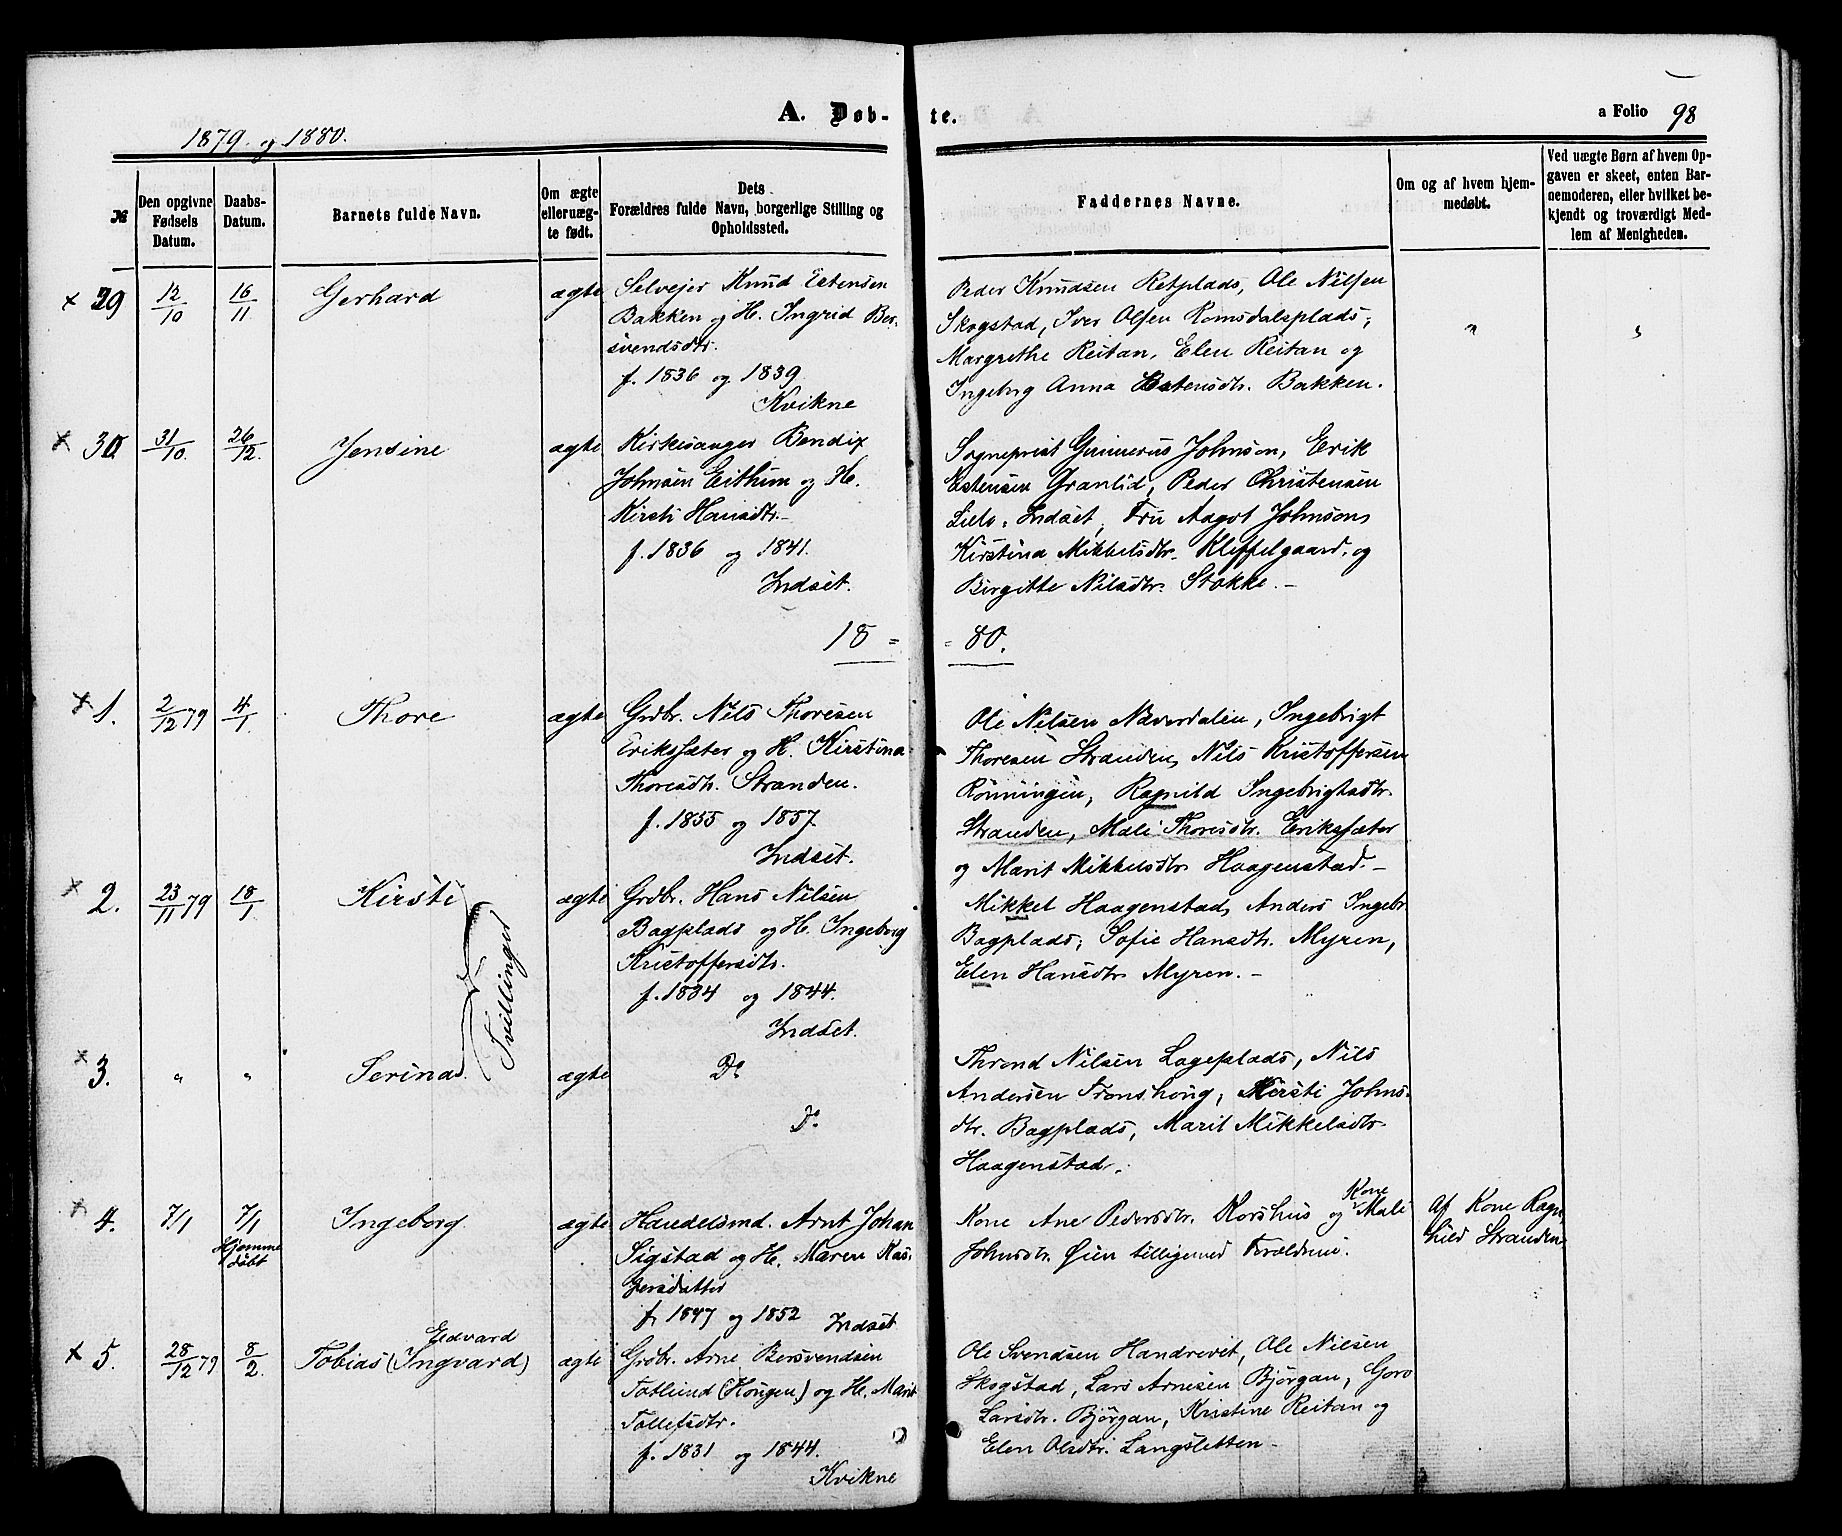 1879 og 1880.
A. Døb-te.
a Folio 98
№
Den opgivne Fødsels Datum.
Daabs-Datum.
Barnets fulde Navn.
Om ægte eller uæg-te født.
Dets Forældres fulde Navn, borgerlige Stilling og Opholdssted.
Faddernes Navne.
Om og af hvem hjem-medøbt.
Ved uægte Børn af hvem Op-gaven er skeet, enten Bar-nemoderen, eller hvilket be-kjendt og troværdigt Med-lem af Menigheden.
× 29 12/10 16/11 Gerhard ægte
Selvejer Knud Estensen
Bakken og H. Ingrid Ber-
svendsdtr.
f. 1836 og 1839
Kvikne
Peder Knudsen Retplads, Ole Nilsen
Skogstad, Iver Olsen Romsdalsplads,
Margrethe Reitan, Elen Reitan og
Ingebrg Anna Estensdtr. Bakken.
" "
× 30 31/10. 26/12. Jensine ægte
Kirkesanger Bendix
Johnsen Eithun og H.
Kirsti Hansdtr.-
f. 1836 og 1841.
Indset.
Sogneprest Gunnerus Johnson, Erik
Estensen Granlid, Peder Christensen
Indset, Fru Aagot Johnson,
Kirstina Mikkelsdtr. Kleffelgaard, og
Birgitte Nilsdtr. Stokke. -
18 = = 80.
× 1. 2/12 79 4/1 Thore ægte
Grdbr. Nils Thoresen
Eriksfæter og H. Kirstina
Thoresdtr. Stranden.
f. 1855 og 1857.
Indset.
Ole Nilsen Næverdalen, Ingebrigt
Thoresen Stranden, Nils Kristoffersen
Rönningen, Ragnild Ingebrigtsdtr.
Stranden, Mali Thoresdtr. Eriksfæter
og Marit Mikkelsdtr Haagenstad. -
× 2. 23/11 79 18/1 Kirsti ægte
Tvillinger
Grdbr. Hans Nilsen
Bagplads og H. Ingeborg
Kristoffersdtr.
f. 1834 og 1844.
Indset.
Mikkel Haagenstad, Anders Ingebr.
Bagplads, Sofie Hansdtr. Myren,
Elen Hansdtr Myren. -
× 3. " " Serina ægte
Do
do
Thrond Nilsen Lageplads, Nils
Andersen Tronshoug, Kirsti Johns-
dtr. Bagplads, Marit Mikkelsdtr
Haagenstad.
× 4. 7/1 7/1 Hjemme døbt Ingeborg ægte
Handelsmd. Arnt Johan
Sigstad og H. Maren Kas-
persdatter
f. 1847 og 1852 Indset
Kone Ane Pedersdtr. Korshus og Kone Mali
Johnsdtr. Øien tilligemed Forældrene.
Af Kone Ragn
hild Stranden
× 5. 28/12 79 8/2. Tobias (Ingvard) Edvard ægte
Grdbr. Arne Bersvendsen
Totlund (Hougen) og H. Marit
Tollefsdtr.
f. 1831 og 1844.
Kvikne
Ole Svendsen Handrevet, Ole Nilsen
Skogstad, Lars Arnesen Bjørgan, Goro
Larsdtr. Bjørgan, Kristine Reitan og
Elen Olsdtr. Langsletten -